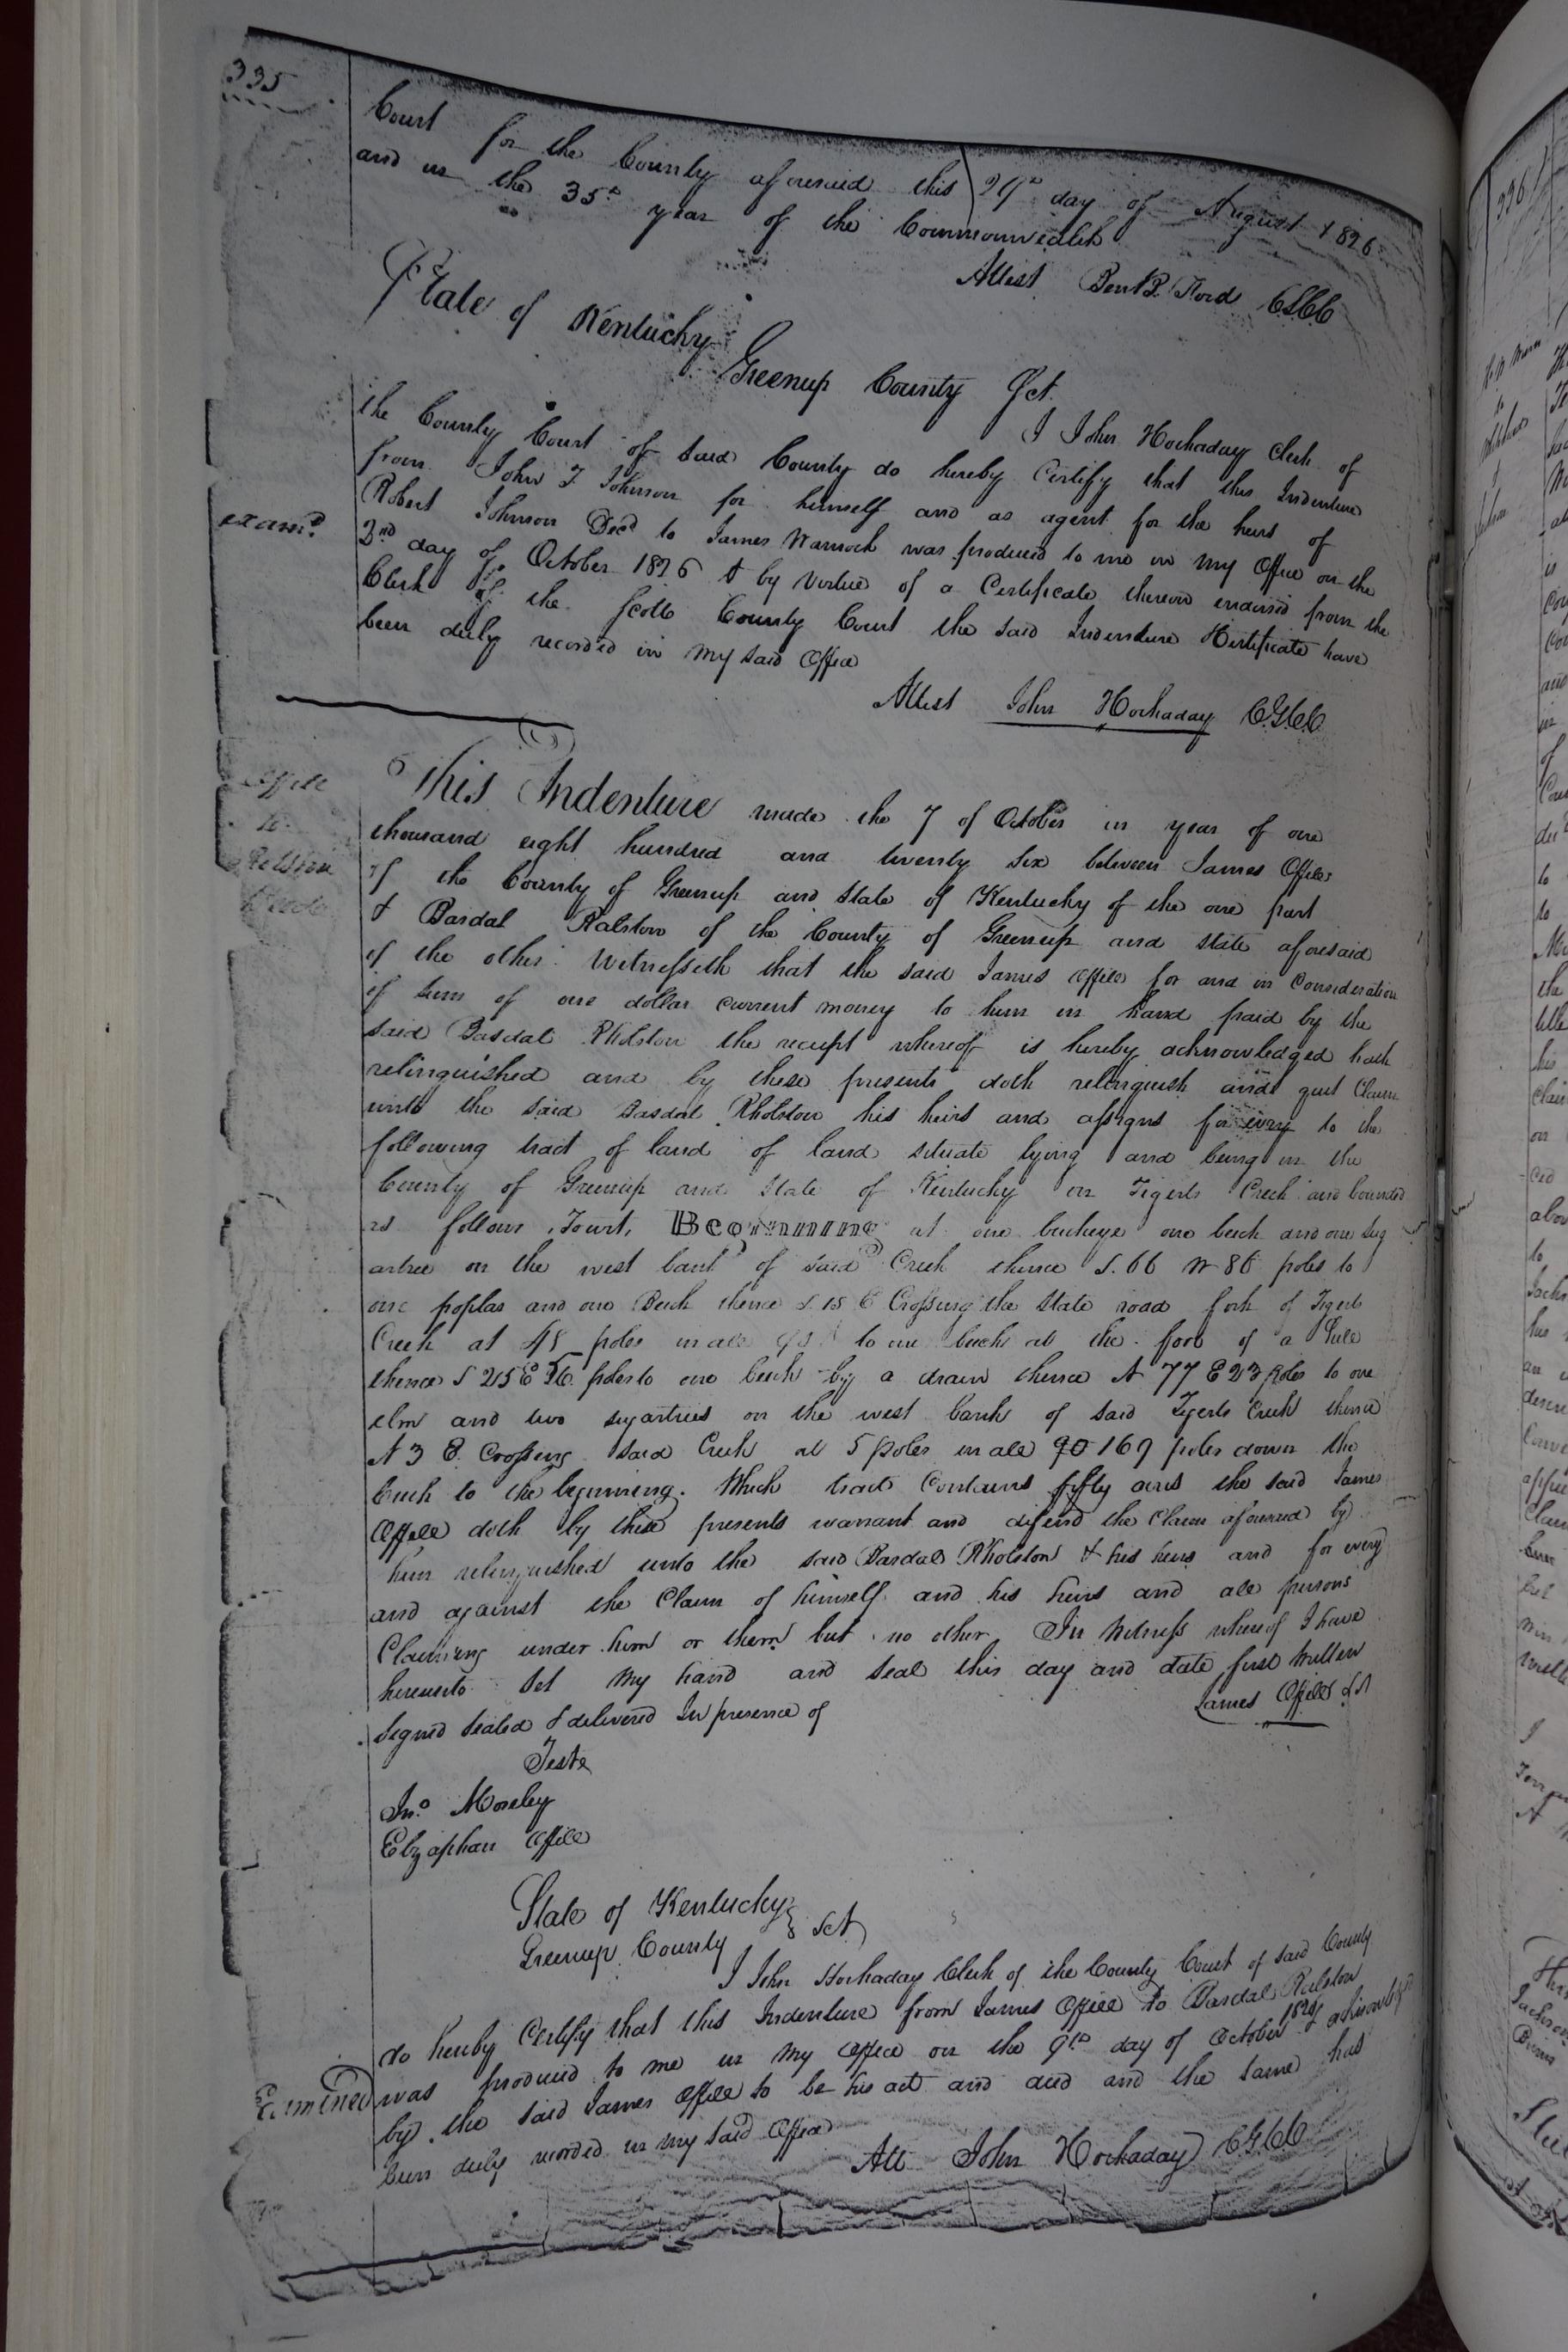 335
Court for the County aforesaid this 29th day of August 1826
and in the 35th year of the Commonwealth
Attest Ben B. Ford CSCC
State of Kentucky
Greenup County Sct.
I John Hockaday Clerk of
the County Court of said County do hereby Certify that this Indenture
from John T Johnson for himself and as agent for the heirs of
Robert Johnson Decd to James Warnock was produced to me in my Office on the
2nd day of October 1826 & by virtue of a Certificate thereon endorsed from the
Clerk of the Scott County Court the said Indenture & Certificate have
been duly recorded in my said Office
examd.
Attest John Hockaday CGCC
Offill
to
Ralston
This Indenture made the 7 of October in year of one
thousand eight hundred and twenty six between James Offill
of the County of Greenup and State of Kentucky of the one part
& Basdal Ralston of the County of Greenup and state aforesaid
of the other Witnesseth that the said James Offill for and in Consideration
of sum of one dollar current money to him in hand paid by the
said Basdal Rholston the receipt whereof is hereby acknowledged hath
relinquished and by these presents doth relinquish and quit Claim
unto the said Basdal Rholston his heirs and assigns for every to the
following tract of land of land situate lying and being in the
County of Greenup and State of Kentucky on Tigerts Creek and bounded
as follows Towit, Beginning at one buckeye one beech and one sug
artree on the west bank of said Creek thence S. 66 W 86 poles to
one poplar and one Beech thence S 15 E Crossing the State road fork of Tigerts
Creek at 48 poles in all to one beech at the foot of a hill
thence S 25 E 56 poles to one beech by a drain thence N 77 E 23 poles to one
elm and two sugartrees on the west bank of said Tigerts Creek thence
N 3 E. Crossing said Creek at 5 poles in all 90 169 poles down the
Creek to the beginning. Which tract Contains fifty acres the said James
Offill doth by these presents warrant and defend the Claim aforesaid by
him relinquished unto the said Basdal Rholston & his heirs and for every
and against the Claim of himself and his heirs and all persons
Claiming under him or them but no other In Witness whereof I have
hereunto set my hand and seal this day and date first written
Signed sealed & delivered In presence of James Offill
Teste
Jno. Moseley
Elzaphan Offill
State of Kentucky
Greenup County } Sct
I John Hockaday Clerk of the County Court of said County
do hereby Certify that this Indenture from James Offill to Basdal Ralston
was produced to me in my Office on the 9th day of October 1826 & acknowledged
Examined
by the said James Offill to be his act and deed and the same has
been duly recorded in my said Office
Att John Hockaday CGCC
336